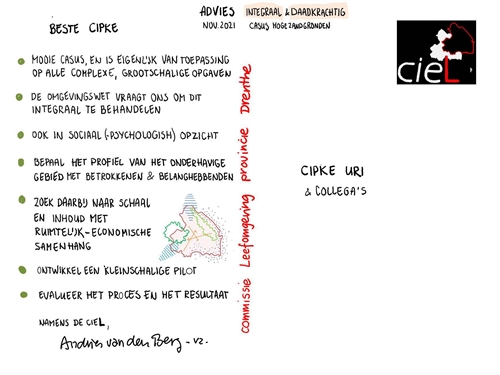 ADVIES INTEGRAAL & DAADKRACHTIG
NOV. 2021 CASUS HOGEZANDGRONDEN
BESTE CIPKE
MOOIE CASUS, EN IS EIGENLIJK VAN TOEPASSING
OP ALLE COMPLEXE, GROOTSCHALIGE OPGAVEN
DE OMGEVINGSWET VRAAGT ONS OM DIT
INTEGRAAL TE BEHANDELEN
OOK IN SOCIAAL (-PSYCHOLOGISH) OPZICHT
BEPAAL HET PROFIEL VAN HET ONDERHAVIGE
GEBIED MET BETROKKENEN & BELANGHEBBENDEN
ZOEK DAARBIJ NAAR SCHAAL
EN INHOUD MET
RUIMTELIJK-ECONOMISCHE
SAMENHANG
ONTWIKKEL EEN KLEINSCHALIGE PILOT
EVALUEER HET PROCES EN HET RESULTAAT
NAMENS DE CIEL,
Andries van den Berg - vz.
commissie Leefomgeving provincie Drenthe
cieL
CIPKE URI
& COLLEGA'S